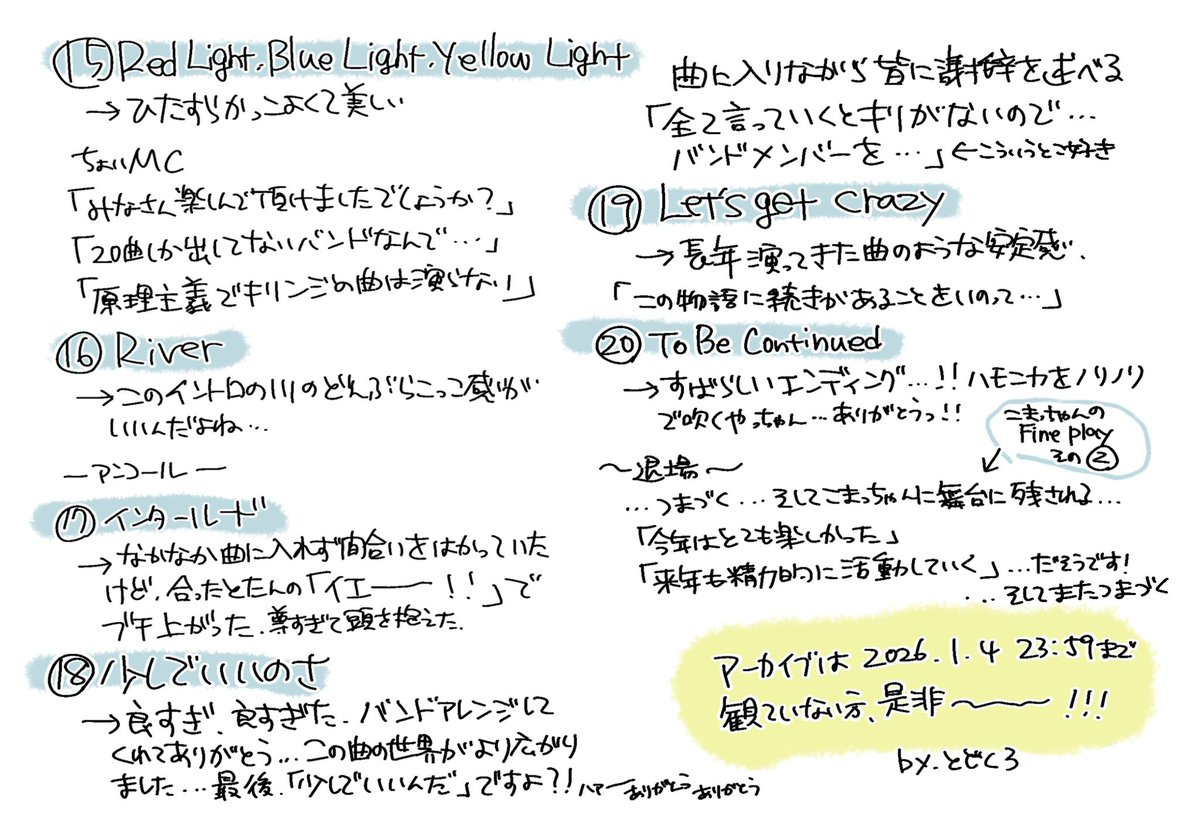 ⑮ Red Light, Blue Light, Yellow Light
→ひたすらかっこよくて美しい
ちょいMC
「みなさん楽しんで頂けましたでしょうか?」
「20曲しか出してないバンドなんで…」
「原理主義でキリンジの曲は演らない」
⑯ River
→このイントロの川のどんぶらこっこ感が
いいんだよね…
ーアンコールー
⑰ インタールード
→なかなか曲に入れず間合いをはかっていた
けど、合ったとたんの「イエー!!」で
ブチ上がった、尊すぎて頭を抱えた。
⑱ 少しでいいのさ
→良すぎ、良すぎた、バンドアレンジして
くれてありがとう…この曲の世界がより広がり
ました…最後、「少しでいいんだ」ですよ?!ハァーありがとうありがとう
曲に入りながら皆に謝辞を述べる
「全て言っていくとキリがないので…
バンドメンバーを…」←こういうとこ好き
⑲ Let's get crazy
→長年演ってきた曲のような安定感、
「この物語に続きがあることをいのって…」
⑳ To Be Continued
→すばらしいエンディング…!!ハモニカをノリノリ
で吹くやっちゃん…ありがとうっ!!
こまっちゃんの
Fine play
その②
〜退場〜
…つまづく…そしてこまっちゃんに舞台に残される…
「今年はとても楽しかった」
「来年も精力的に活動していく」…だそうです!
…そしてまたつまづく
アーカイブは 2026.1.4 23:59まで
観ていない方、是非〜!!!
by.とどくろ